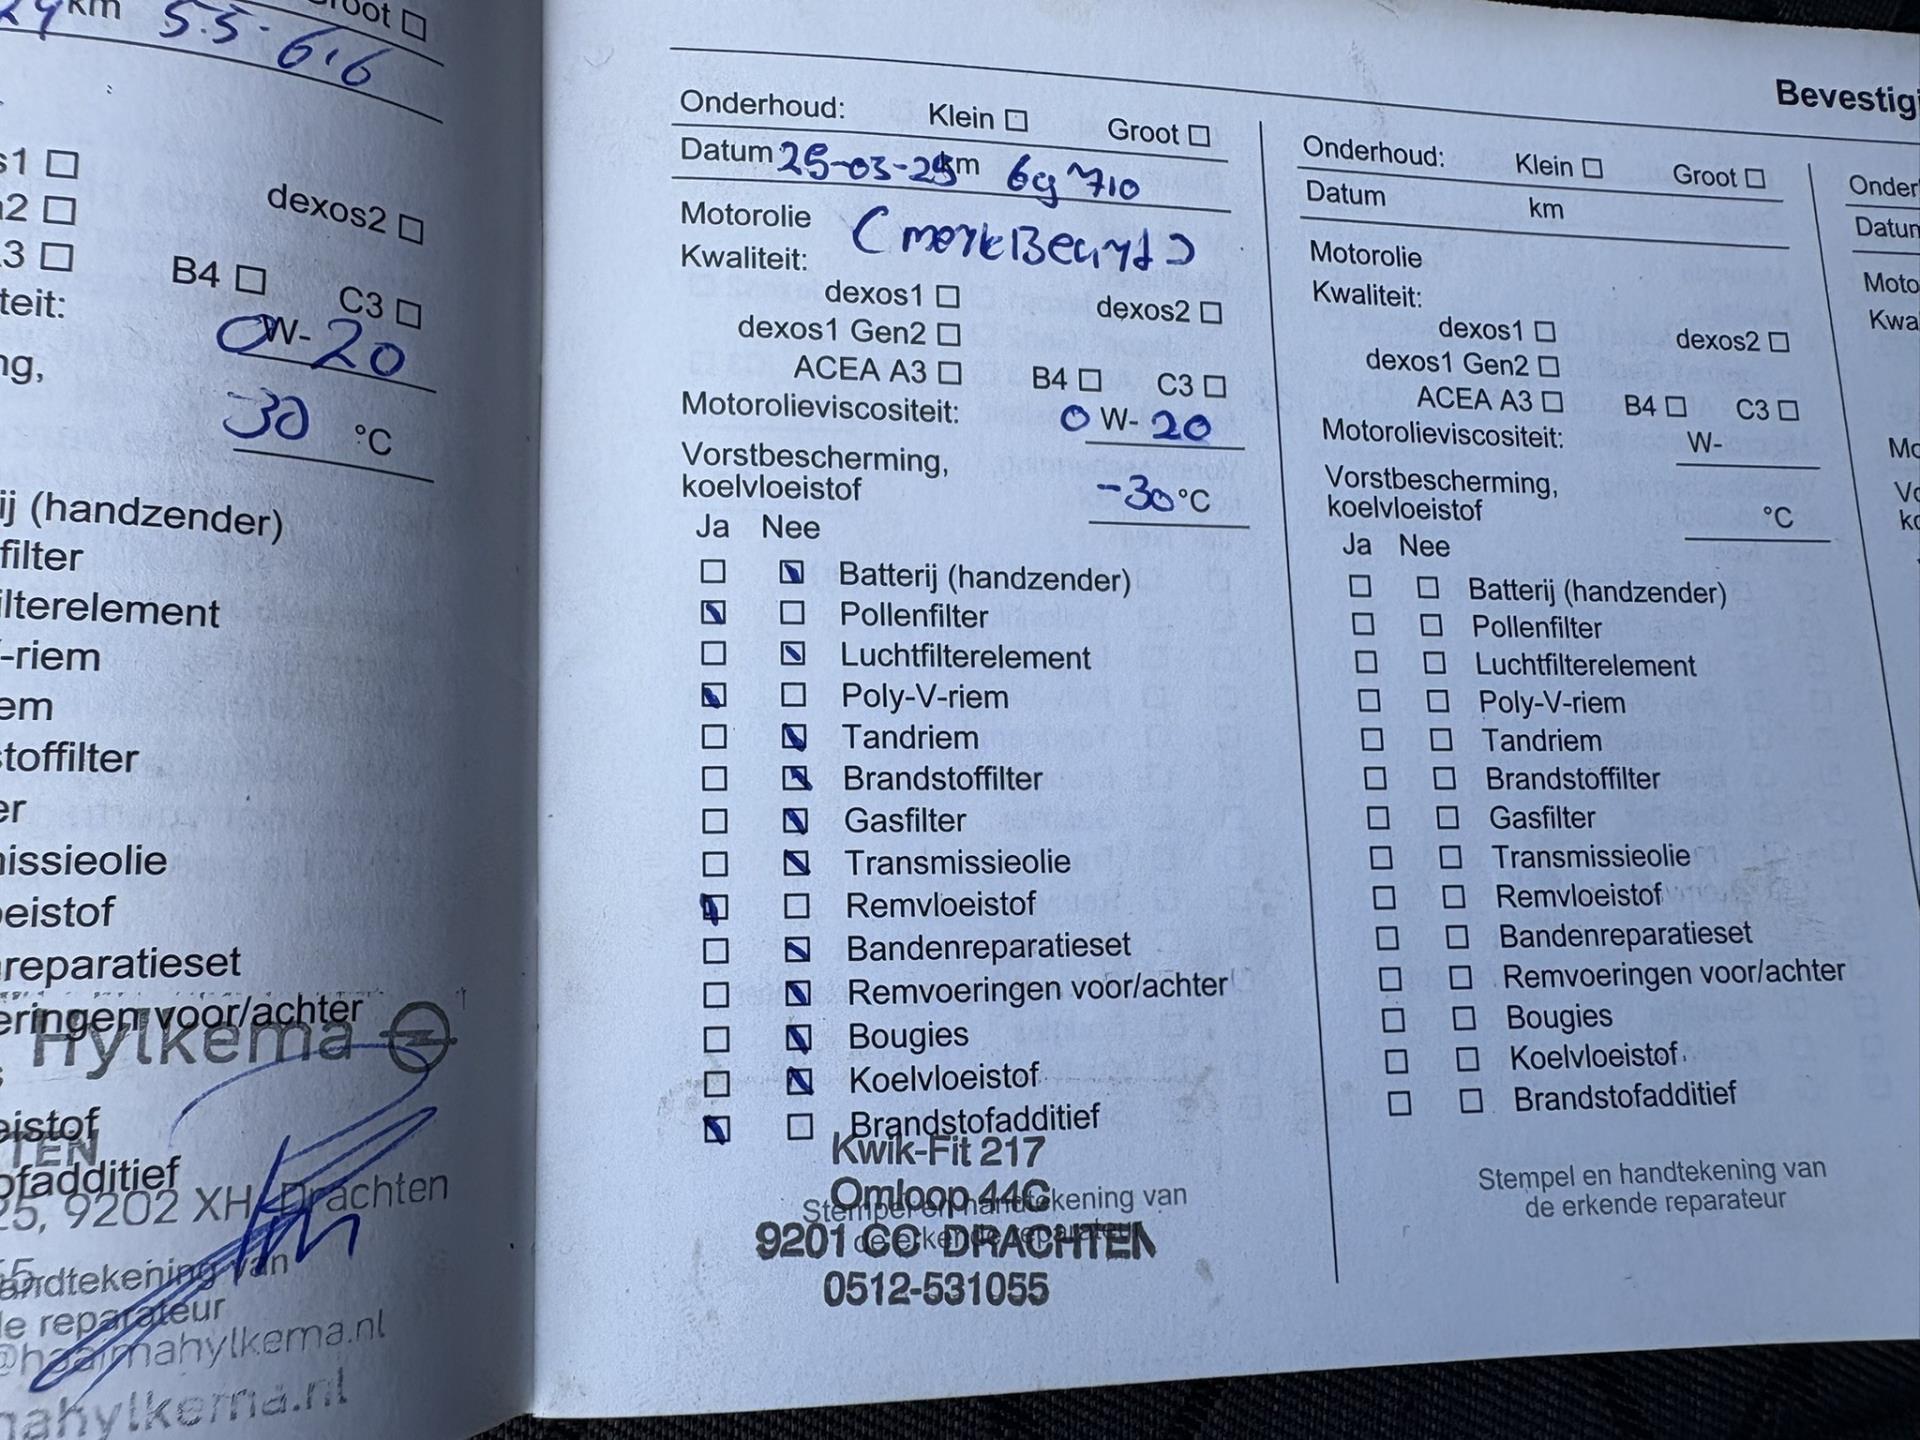 24 km 55.616
Groot
s1
dexos2
a2
A3 B4 C3
teit:
0W-20
ng,
-30 °C
ij (handzender)
filter
ilterelement
V-riem
em
stoffilter
er
missieolie
oeistof
nreparatieset
eringen voor/achter
Hylkema
eistof
TEN
ofadditief
25, 9202 XH Drachten
andtekening van
de reparateur
@haaimahylkema.nl
mahylkema.nl
Bevestigi
Onderhoud: Klein Groot
Datum 25-03-25 km 69710
Motorolie (merkBeurt)
Kwaliteit:
dexos1 dexos2
dexos1 Gen2
ACEA A3 B4 C3
Motorolieviscositeit: 0 W- 20
Vorstbescherming,
koelvloeistof -30 °C
Ja Nee
Batterij (handzender)
Pollenfilter
Luchtfilterelement
Poly-V-riem
Tandriem
Brandstoffilter
Gasfilter
Transmissieolie
Remvloeistof
Bandenreparatieset
Remvoeringen voor/achter
Bougies
Koelvloeistof
Brandstofadditief
Kwik-Fit 217
Omloop 44C
Stempel en handtekening van
de erkende reparateur
9201 CC DRACHTEN
0512-531055
Onderhoud: Klein Groot
Datum km
Motorolie
Kwaliteit:
dexos1 dexos2
dexos1 Gen2
ACEA A3 B4 C3
Motorolieviscositeit: W-
Vorstbescherming,
koelvloeistof °C
Ja Nee
Batterij (handzender)
Pollenfilter
Luchtfilterelement
Poly-V-riem
Tandriem
Brandstoffilter
Gasfilter
Transmissieolie
Remvloeistof
Bandenreparatieset
Remvoeringen voor/achter
Bougies
Koelvloeistof
Brandstofadditief
Stempel en handtekening van
de erkende reparateur
Onder
Datum
Moto
Kwa
Mo
Vo
ko